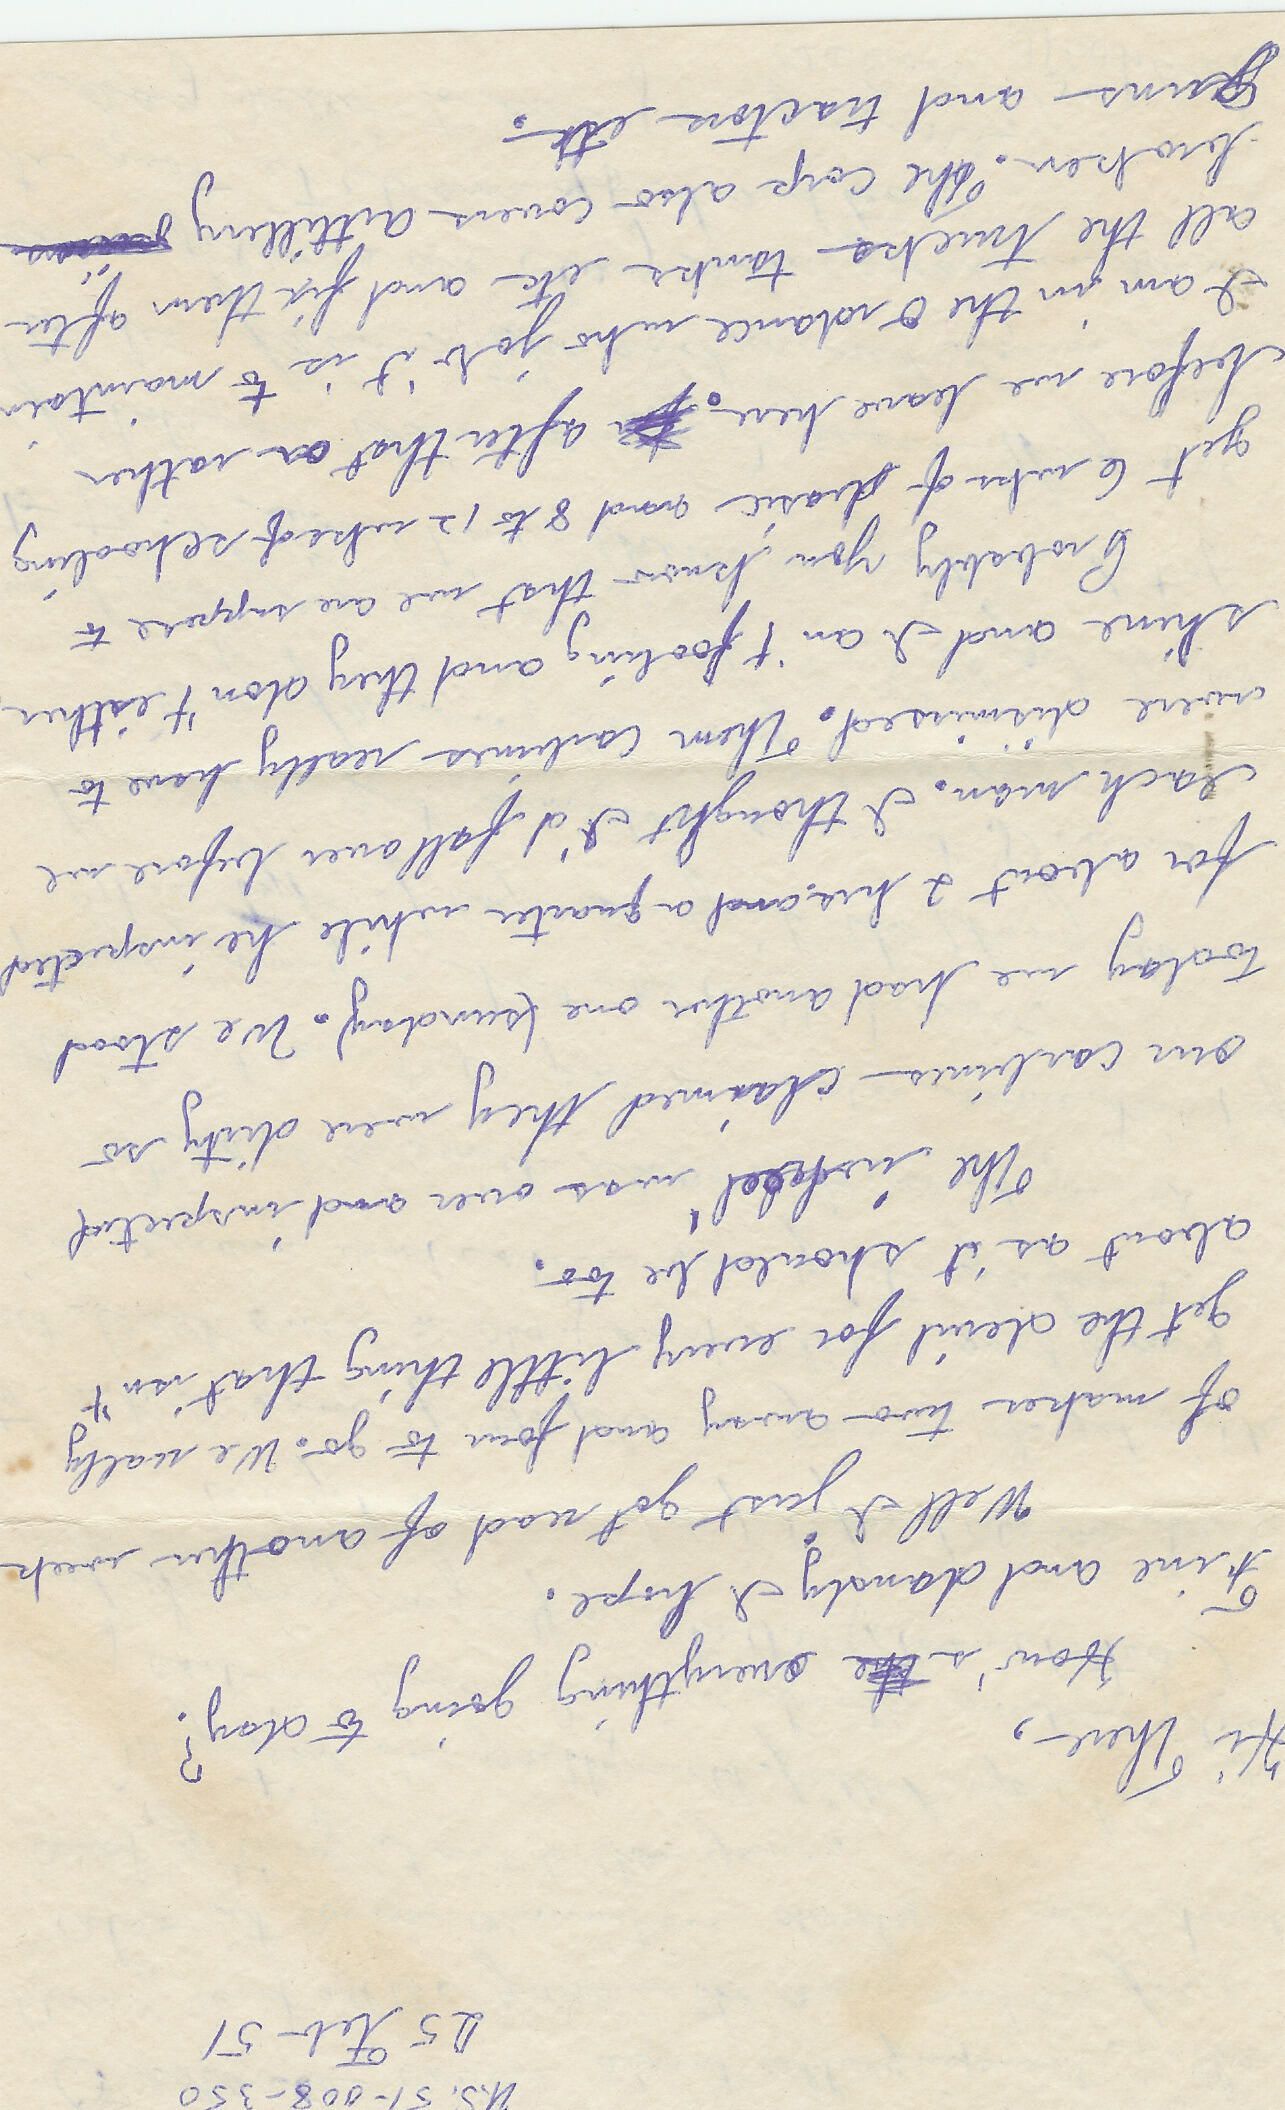 U.S. 51-008-350
25 Feb 51
Hi There,
How's everything going to day?
Fine and dandy I hope.
Well I just got read of another week
of maken two away and four to go. We really
get the devil for every little thing that isn't
about as it should be too.
The was over and inspected
our carbines claimed they were dirty so
today we had another one (sunday). We stood
for about 2 hrs. and a quarter while he inspected
each man. I thought I'd fall over before we
were dismised. Them carbines really have to
shine and I an't fooling and they don't eather
Probably you know that we are suppose to
get 6 wks of phasic and 8 to 12 wks of schooling
before we leave here. after that or rather
I am in the Ordance who job it is to maintain
all the trucks tanks etc and fix them after
broken. The corp also covers artillery
guns and tractors etc.